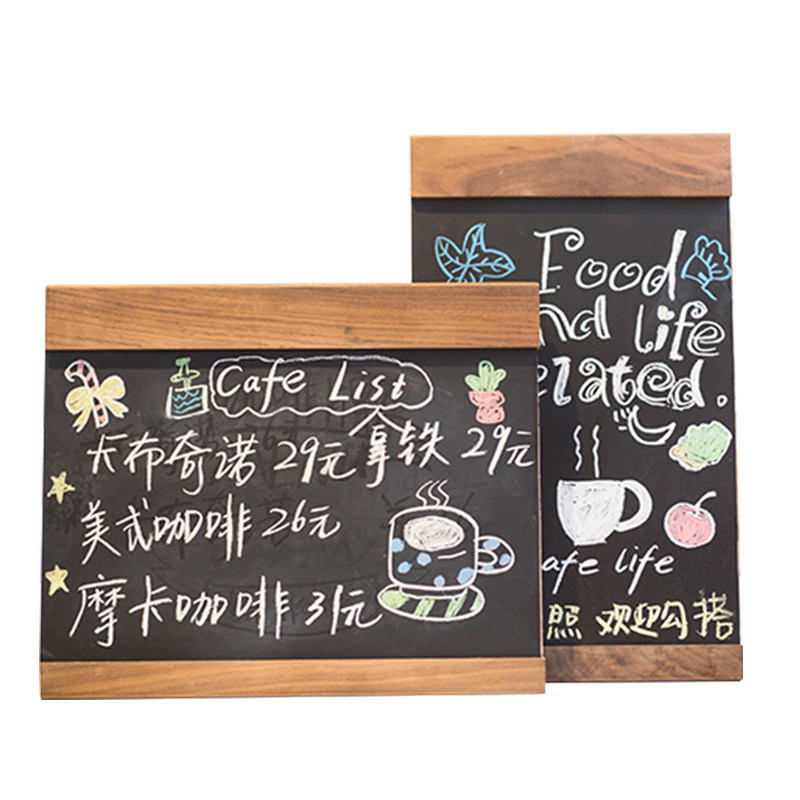 Cafe List
卡布奇诺 29元 拿铁 29元
美式咖啡 26元
摩卡咖啡 31元
Food
nd life
elated.
afe life
照 欢迎勾搭